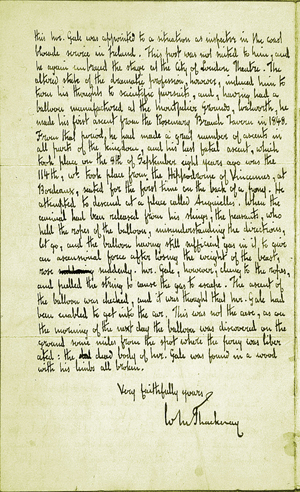 this Mr. Gale was appointed to a situation as inspector in the coast
blocade service in Ireland. This post was not suited to him, and
he again embraced the stage at the City of London Theatre. The
altered state of the dramatic profession, however, induced him to
turn his thoughts to scientific pursuits, and, having had a
balloon manufactured at the Montpelier Grounds, Walworth, he
made his first ascent from the Rosemary Branch Tavern in 1848.
From that period, he had made a great number of ascents in
all parts of the kingdom, and his last fatal ascent, which
took place on the 9th of September eight years ago was the
114th, wh. took place from the Hippodrome of Vincennes, at
Bordeaux, seated for the first time on the back of a pony. He
attempted to descend at a place called Auguielles. When the
animal had been released from his slings, the peasants, who
held the ropes of the balloon, misunderstanding the directions,
let go, and the balloon having still sufficient gas in it to give
an ascensional force after losing the weight of the beast,
rose suddenly. Mr. Gale, however, clung to the ropes,
and pulled the string to cause the gas to escape. The ascent of
the balloon was checked, and it was thought that Mr. Gale had
been enabled to get into the car. This was not the case, as on
the morning of the next day the balloon was discovered on the
ground some miles from the spot where the pony was liber
ated: the dead body of Mr. Gale was found in a wood
with his limbs all broken.
Very faithfully yours
W M Thackeray